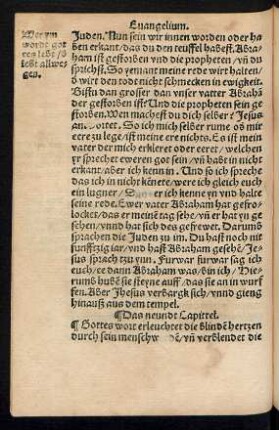 Euangelium.
Wer ym
wordt got
tes lebt / d
lebt allwe
gen.
Juden. Nun sein wir innen worden oder ha
ben erkant / das du den teuffel habest. Abra
ham ist gestorben vnd die propheten / vñ du
sprichst. So yemant meine rede wirt halten /
d wirt den todt nicht schmecken in ewigkeit.
Bistu dan grosser dan vnser vatter Abrahã
der gestorben ist? Und die propheten sein ge
storben. Wen machst du dich selber? Jesus
ortet. So ich mich selber rume ob mir
eere zu lege / ist meine ere nichts. Es ist mein
vater der mich erkleret oder eeret / welchen
yr sprecht eweren got sein / vñ habt in nicht
erkant / aber ich kenn in. Und so ich spreche
das ich in nicht kēnete / were ich gleich euch
ein lugner / er ich kenne yn vnd halte
seine rede. Ewer vater Abraham hat gefro-
locket / das er meinē tag sehe / vñ er hat yn ge
sehen / vnnd hat sich des gefrewet. Darumb
sprachen die Juden zu im. Du hast noch nit
funfftzig iar / vnd hast Abraham gesehē / Je-
sus sprach tzu ynn. Furwar furwar sag ich
euch / ee dann Abraham was / bin ich / Die-
rumb hubē sie steyne auff / das sie an in wurf
fen. Aber Jhesus verbargk sich / vnnd gieng
hinauß aus dem tempel.
¶ Das neundt Capittel.
¶ Gottes wort erleuchtet die blindē hertzen
durch sein menschw vñ verblendet die